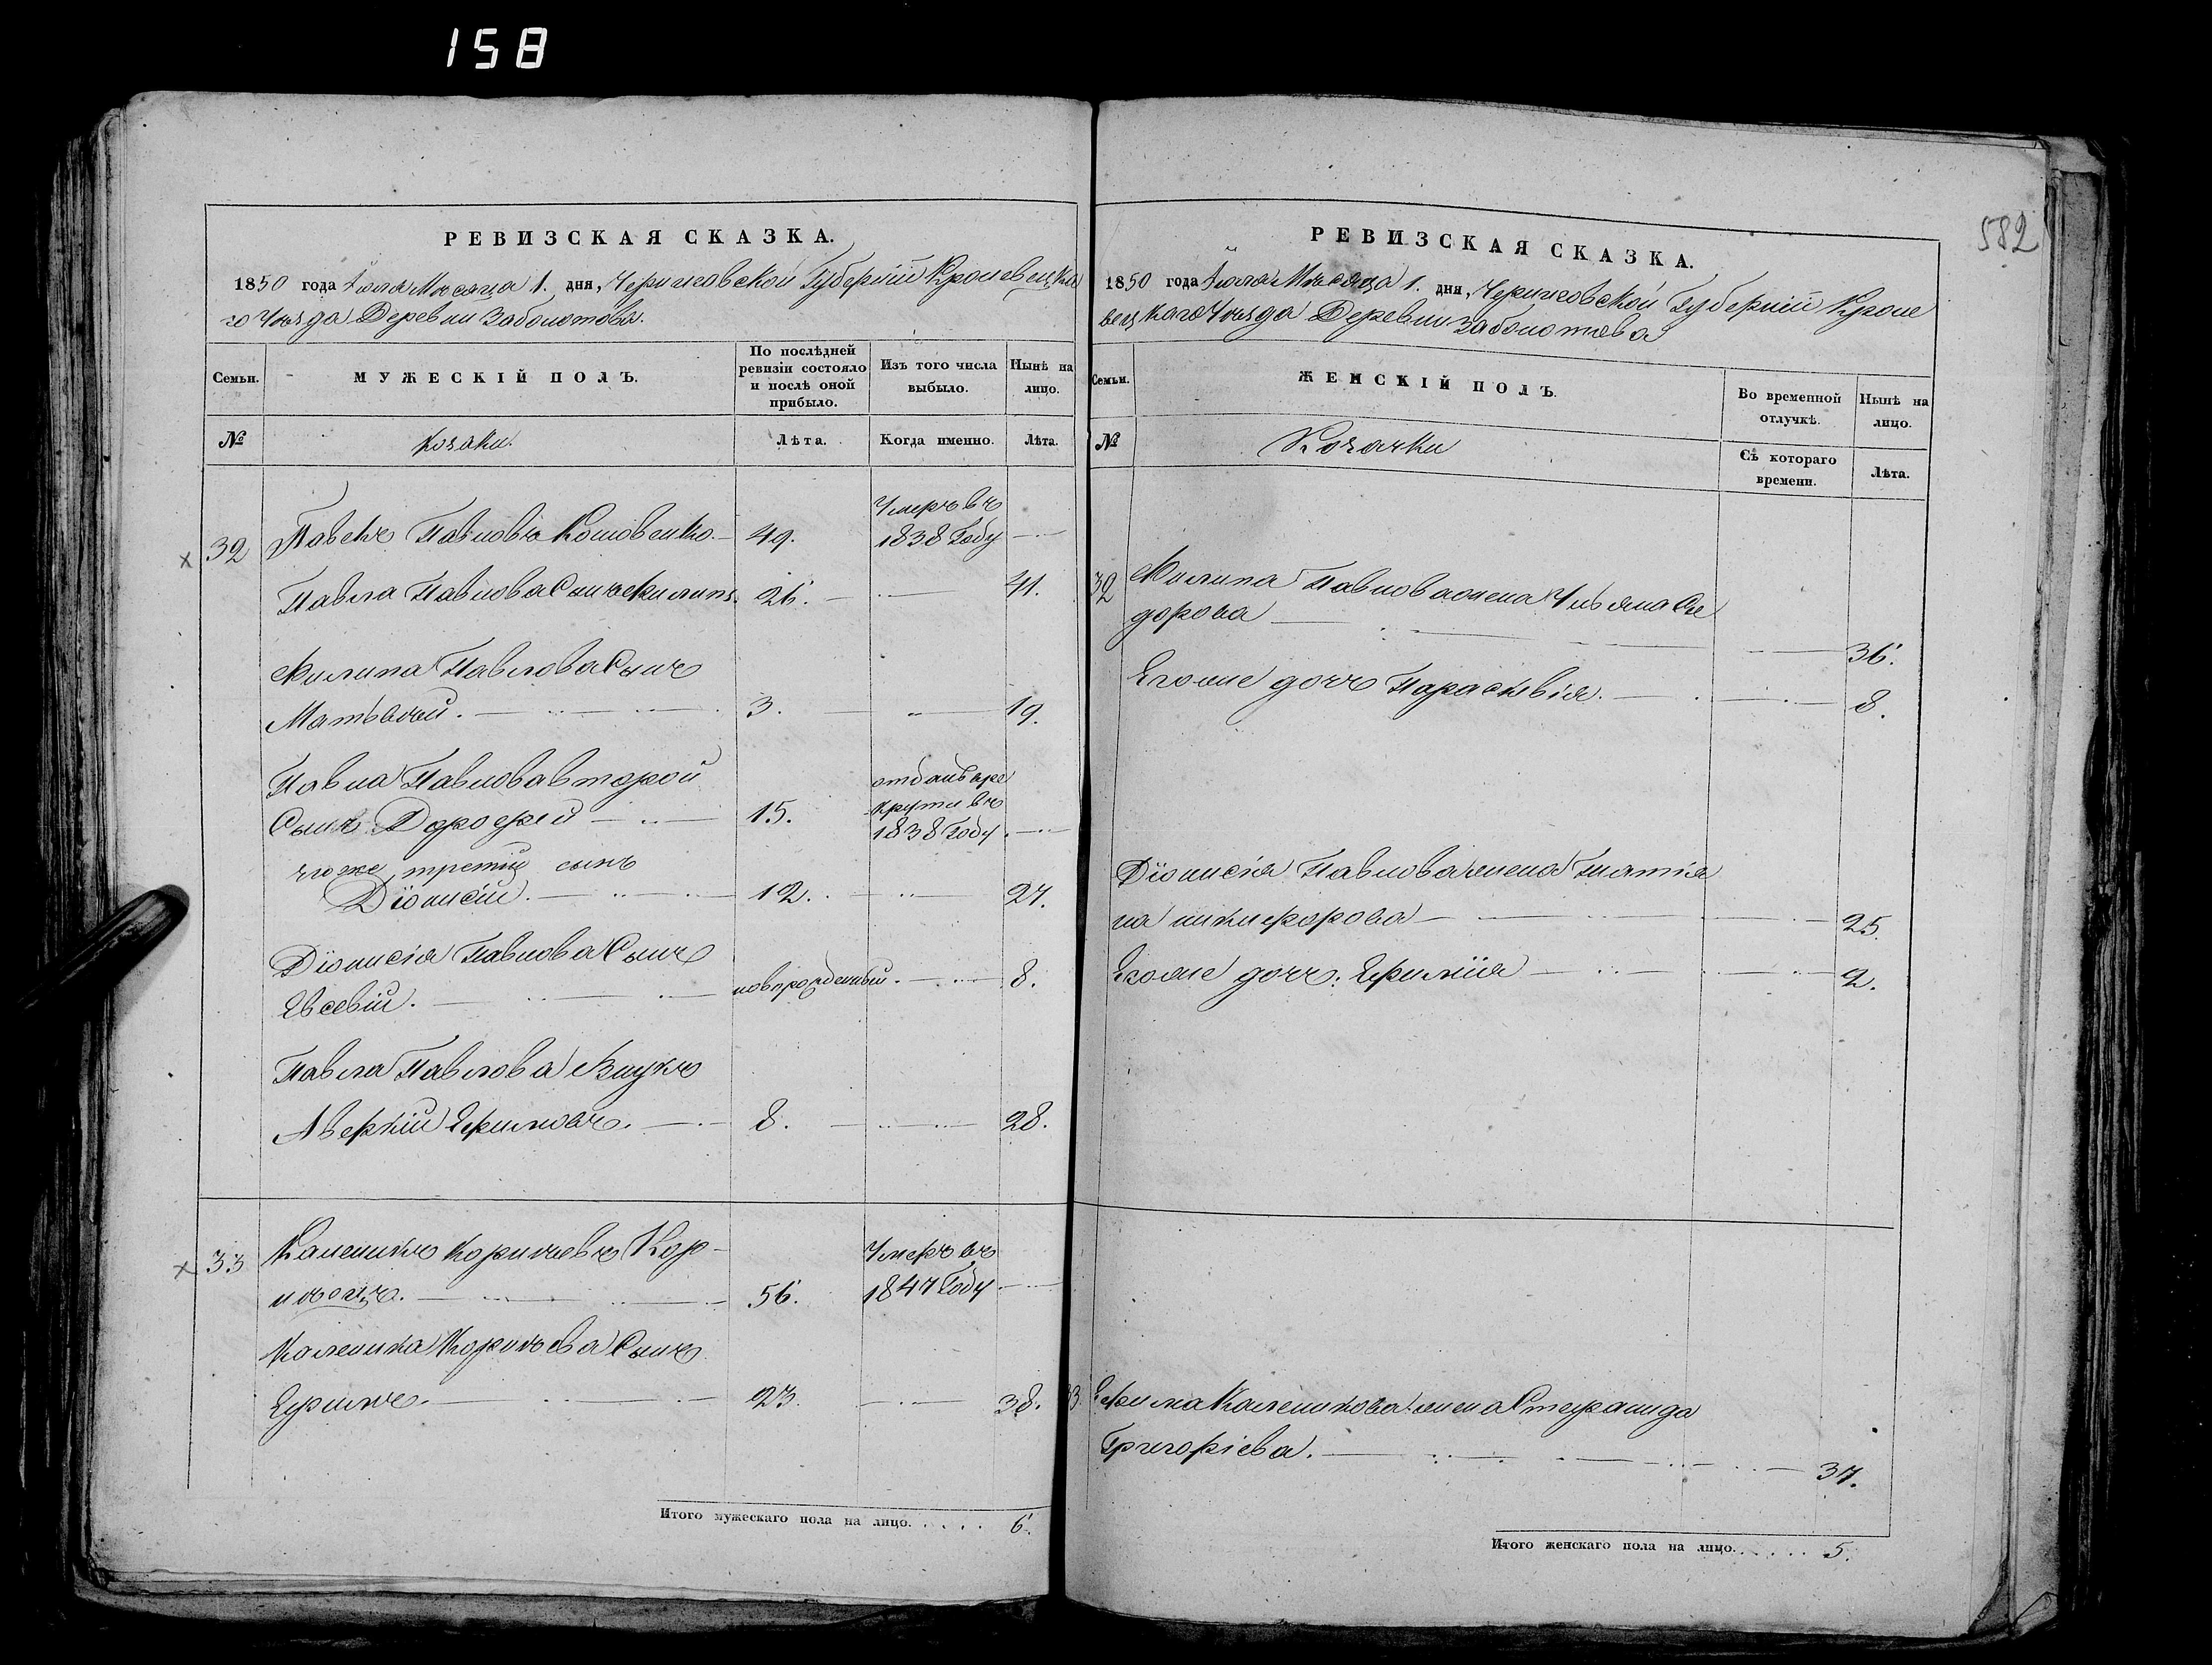 158
РЕВИЗСКАЯ СКАЗКА.
1850 года Іюля Мѣсяца 1. дня, Черниговской Губерніи Кролевецка
го Уѣзда Деревни Заболотова.
Семьи.
МУЖЕСКІЙ ПОЛЪ.
По послѣдней
ревизіи состояло
и послѣ оной
прибыло.
Изъ того числа
выбыло.
Нынѣ на
лицо.
№
Козаки.
Лѣта.
Когда именно.
Лѣта.
Умеръ въ
32 Павелъ Павловъ 49. 1838 Году
Павла Павлова Сынъ Филипъ. 26. 41.
Филипа Павлова Сынъ
Матѣвѣй. 3. 19.
Павла Павлова второй
Сынъ Дорофей 15. отданъ въ ре
крути въ
1838 Году.
его же третій сынъ
Діонисій. 12. 27.
Діонисія Павлова Сынъ
Евсевій. новорожденный. 8.
Павла Павлова Внукъ
Аверкій Ефимовъ. 8. 28.
33 Каленикъ Корнѣевъ Кор-
нѣецъ. 56. Умеръ въ
1847 Году
Каленика Корнѣева Сынъ
Ефимъ. 23. 38.
Итого мужескаго пола на лицо..... 6.
582
РЕВИЗСКАЯ СКАЗКА.
1850 года Іюля Мѣсяца 1. дня, Черниговской Губерніи Кроле
вецкаго Уѣзда Деревни Заболотова
Семьи.
ЖЕНСКІЙ ПОЛЪ.
Во временной
отлучкѣ.
Нынѣ на
лицо.
№
Козачки
Съ котораго
времени.
Лѣта.
32 Филипа Павлова жена Ульяна Си
дорова 36.
Его же дочь Параскевія. 8.
Діонисія Павлова жена
на никифорова 25.
Его же дочь: Ефимія 2.
33 Ефима Каленикова жена Стефанида
Григоріева. 37.
Итого женскаго пола на лицо..... 5.